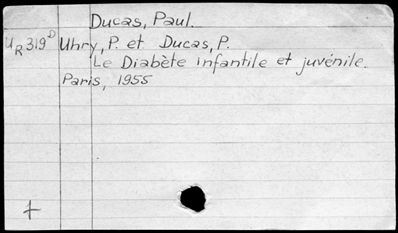 Ducas, Paul.
UR 319 D Uhry, P. et Ducas, P.
Le Diabète infantile et juvénile.
Paris, 1955